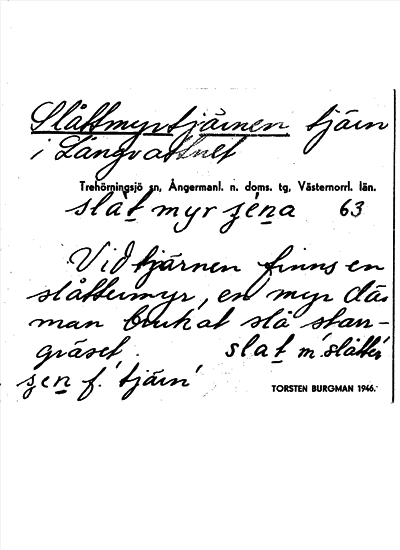 Slåttmyrtjärnen tjärn
i Långvattnet
Trehörningsjö sn, Ångermanl. n. doms. tg, Västernorrl. län.
slat myr zena 63
Vid tjärnen finns en
slåttermyr, en myr där
man brukat slå starr-
gräset. slat m. 'slåtter'
zen f. 'tjärn'
TORSTEN BURGMAN 1946.